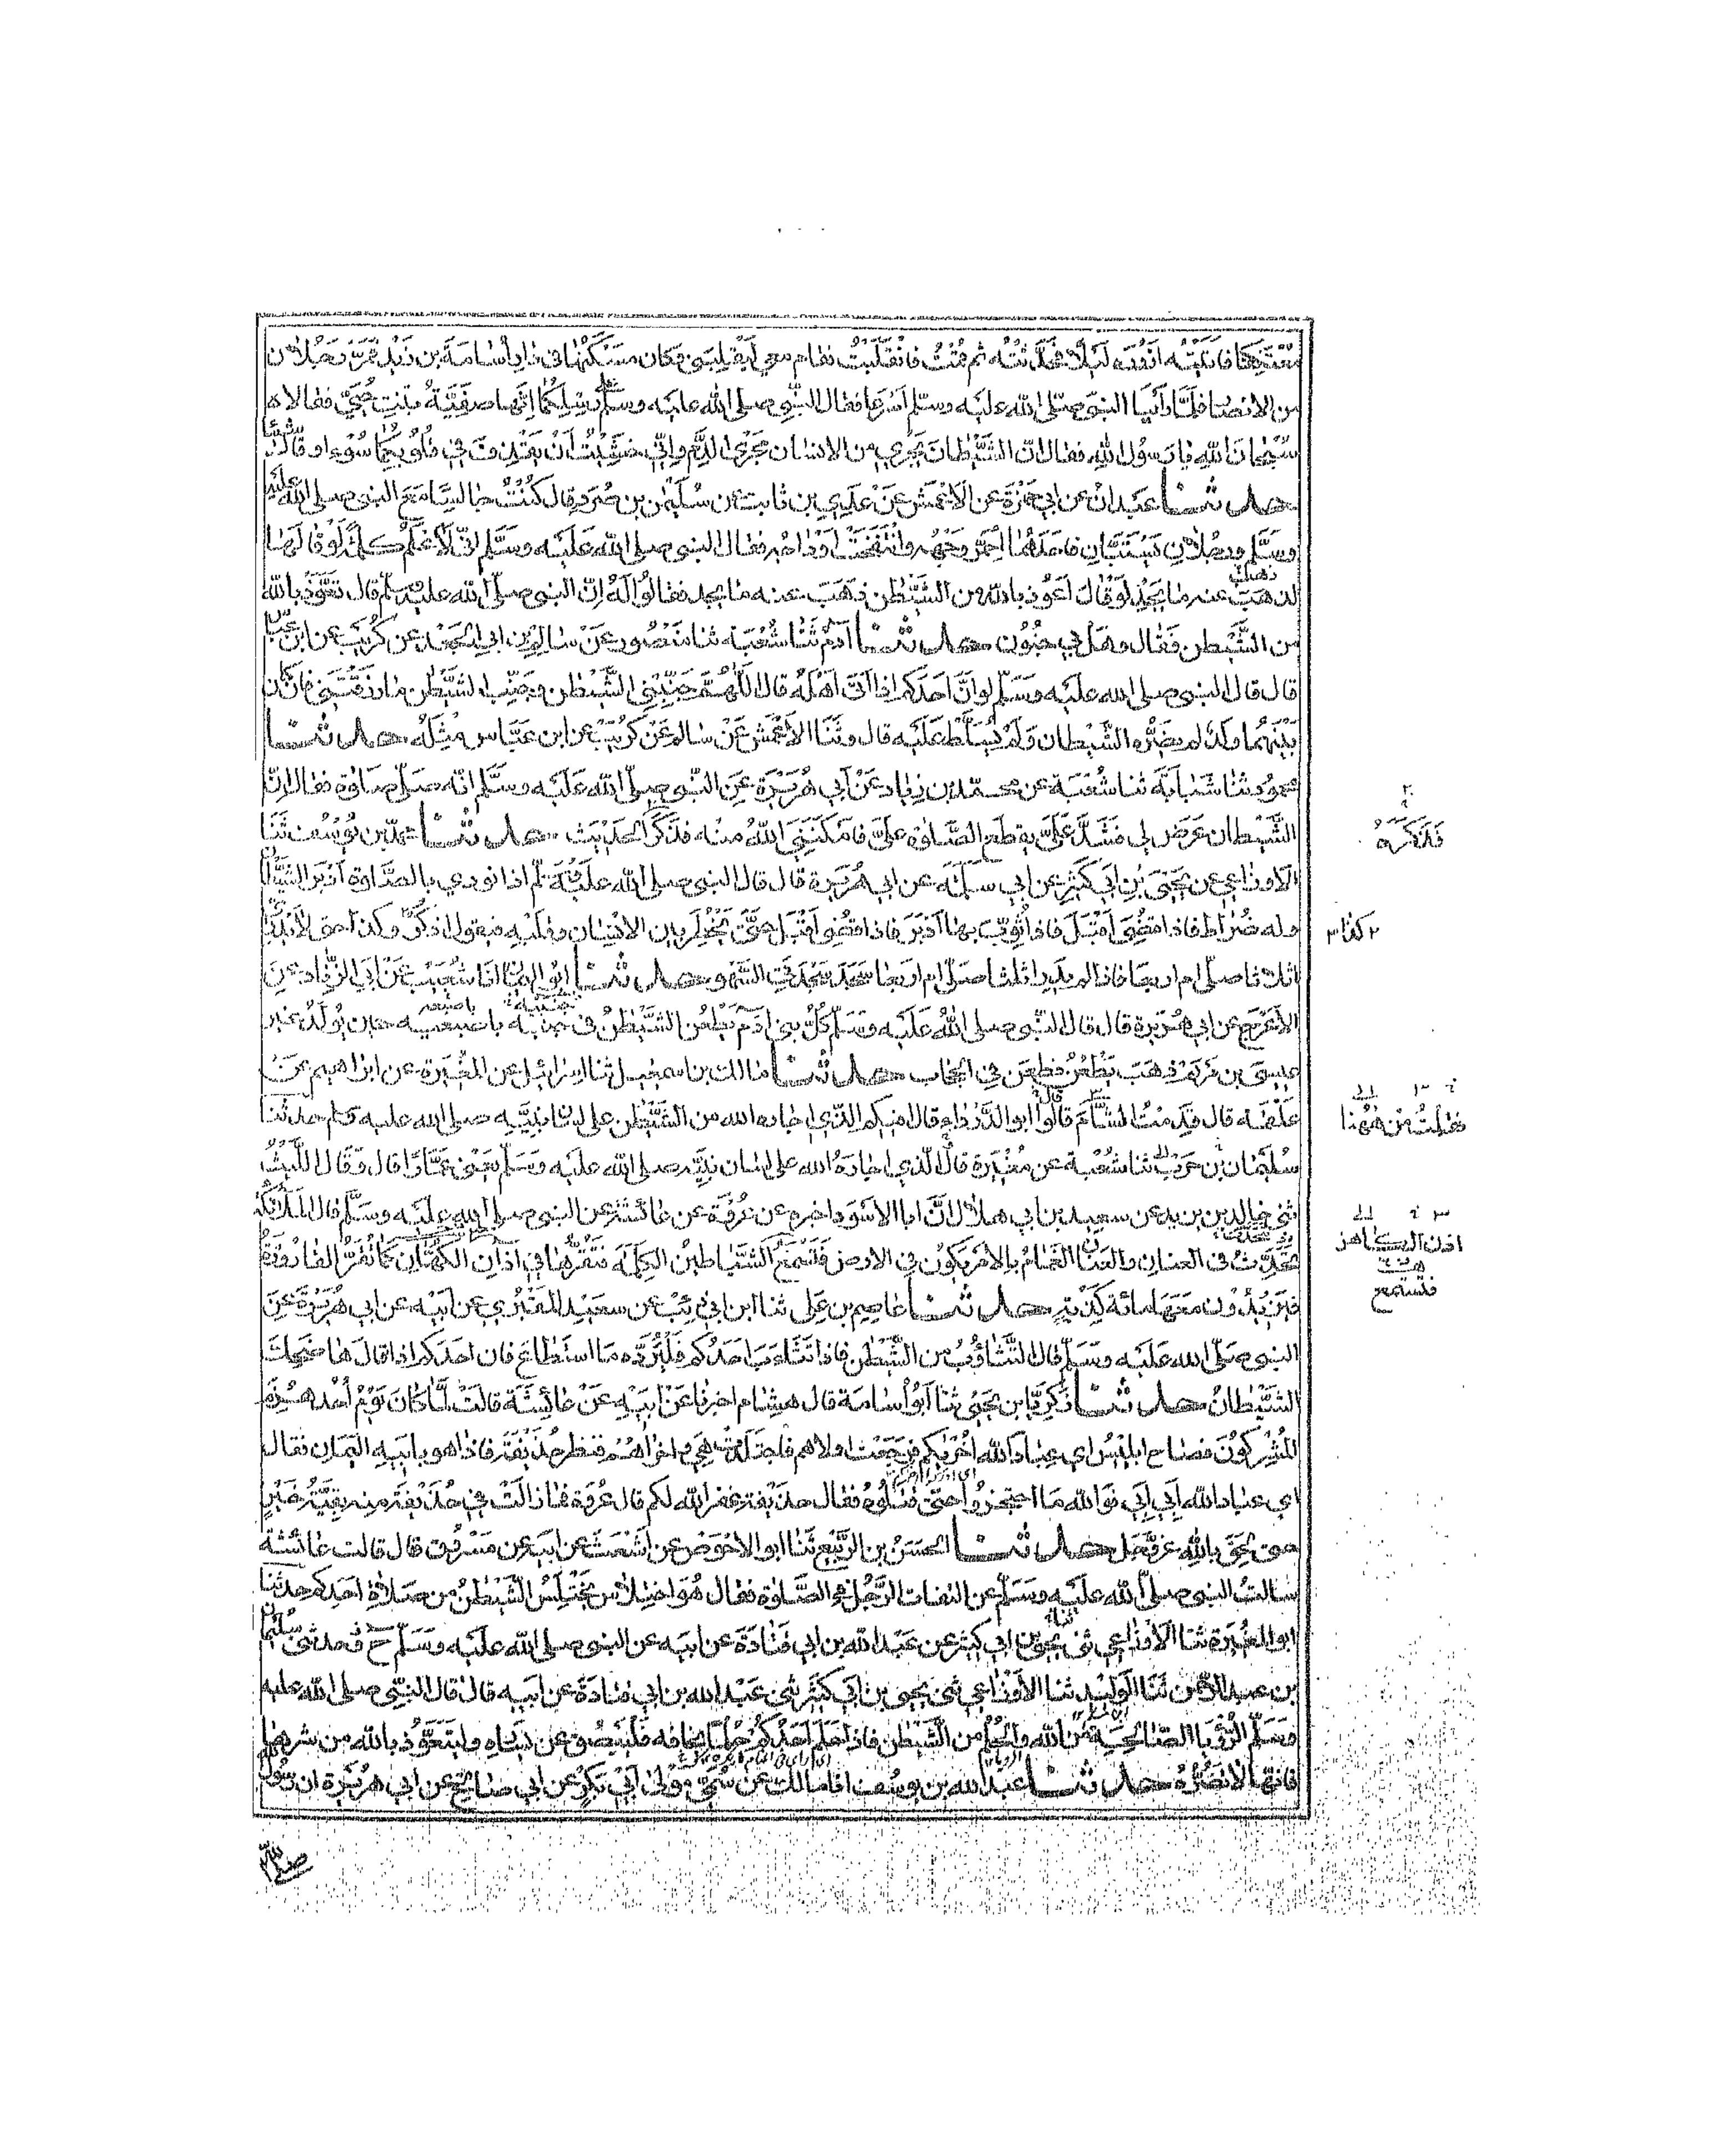 معتكفا فاتيته ازوره ليلا فحدثته ثم قمت فانقلبت فقام معي ليقلبني وكان مسكنها في دار اسامة بن زيد فمر رجلان
من الانصار فلما رأيا النبي صلى الله عليه وسلم اسرعا فقال النبي صلى الله عليه وسلم على رسلكما انها صفية بنت حيي فقالا
سبحان الله يا رسول الله فقال ان الشيطان يجري من الانسان مجرى الدم واني خشيت ان يقذف في قلوبكما سوءا او قال شيئا
حدثنا عبدان عن ابي حمزة عن الاعمش عن عدي بن ثابت عن سليمن بن صرد قال كنت جالسا مع النبي صلى الله عليه
وسلم ورجلان يستبان فاحدهما احمر وجهه وانتفخت اوداجه فقال النبي صلى الله عليه وسلم اني لاعلم كلمة لو قالها
لذهب عنه ما يجد لو قال اعوذ بالله من الشيطن ذهب عنه ما يجد فقالوا له ان النبي صلى الله عليه وسلم قال تعوذ بالله
من الشيطن فقال وهل بي جنون حدثنا آدم ثنا شعبة ثنا منصور عن سالم بن ابي الجعد عن كريب عن ابن عباس
قال قال النبي صلى الله عليه وسلم لو ان احدكم اذا اتى اهله قال اللهم جنبني الشيطن وجنب الشيطن ما رزقتني فان كان
بينهما ولد لم يضره الشيطان ولم يسلط عليه قال وثنا الاعمش عن سالم عن كريب عن ابن عباس مثله حدثنا
محمود ثنا شبابة ثنا شعبة عن محمد بن زياد عن ابي هريرة عن النبي صلى الله عليه وسلم انه صلى صلوة فقال ان
الشيطان عرض لي فشد علي يقطع الصلوة علي فامكنني الله منه فذكر الحديث حدثنا محمد بن يوسف ثنا
فذكره
الاوزاعي عن يحيى بن ابي كثير عن ابي سلمة عن ابي هريرة قال قال النبي صلى الله عليه وسلم اذا نودي بالصلوة ادبر الشيطان
وله ضراط فاذا قضي اقبل فاذا ثوب بها ادبر فاذا قضي اقبل حتى يخطر بين الانسان وقلبه فيقول اذكر كذا وكذا حتى لا يدري
اثلاثا صلى ام اربعا فاذا لم يدر اثلاثا صلى ام اربعا سجد سجدتي السهو حدثنا ابو اليمان انا شعيب عن ابي الزناد عن
الاعرج عن ابي هريرة قال قال النبي صلى الله عليه وسلم كل بني ادم يطعن الشيطن في جنبيه باصبعيه حين يولد غير
عيسى بن مريم ذهب يطعن فطعن في الحجاب حدثنا مالك بن اسمعيل ثنا اسرائيل عن المغيرة عن ابراهيم عن
علقمة قال قدمت الشام قالوا ابو الدرداء وقال افيكم الذي اجاره الله من الشيطن على لسان نبيه صلى الله عليه وسلم حدثنا
فقلت من ههنا
سليمان بن حرب ثنا شعبة عن مغيرة قال الذي اجاره الله على لسان نبيه صلى الله عليه وسلم يعني عمارا قال وقال الليث
ثني خالد بن يزيد عن سعيد بن ابي هلال ان ابا الاسود اخبره عن عروة عن عائشة عن النبي صلى الله عليه وسلم قال الملائكة
تحدث في العنان والعنان الغمام بالامر يكون في الارض فتسمع الشياطين الكلمة فتقرها في اذان الكهان كما تقر القارورة
اذن الكاهن
فتستمع
فيزيدون معها مائة كذبة حدثنا عاصم بن علي ثنا ابن ابي ذئب عن سعيد المقبري عن ابيه عن ابي هريرة عن
النبي صلى الله عليه وسلم قال التثاؤب من الشيطن فاذا تثاءب احدكم فليرده ما استطاع فان احدكم اذا قال ها ضحك
الشيطان حدثنا زكريا بن يحيى ثنا ابو اسامة قال هشام اخبرنا عن ابيه عن عائشة قالت لما كان يوم احد هزم
المشركون فصاح ابليس اي عباد الله اخراكم فرجعت اولاهم فاجتلدت هي واخراهم فنظر حذيفة فاذا هو بابيه اليمان فقال
اي عباد الله ابي ابي فوالله ما احتجزوا حتى قتلوه فقال حذيفة غفر الله لكم قال عروة فما زالت في حذيفة منه بقية خير
حتى لحق بالله عز وجل حدثنا الحسن بن الربيع ثنا ابو الاحوص عن اشعث عن ابيه عن مسروق قال قالت عائشة
سالت النبي صلى الله عليه وسلم عن التفات الرجل في الصلوة فقال هو اختلاس يختلس الشيطن من صلاة احدكم حدثنا
ابو المغيرة ثنا الاوزاعي ثني يحيى بن ابي كثير عن عبد الله بن ابي قتادة عن ابيه عن النبي صلى الله عليه وسلم ح وحدثني سليمان
بن عبد الرحمن ثنا الوليد ثنا الاوزاعي ثني يحيى بن ابي كثير ثني عبد الله بن ابي قتادة عن ابيه قال قال النبي صلى الله عليه
وسلم الرؤيا الصالحة من الله والحلم من الشيطن فاذا حلم احدكم حلما يخافه فليبصق عن يساره وليتعوذ بالله من شرها
فانها لا تضره حدثنا عبد الله بن يوسف انا مالك عن سمي مولى ابي بكر عن ابي صالح عن ابي هريرة ان رسول الله